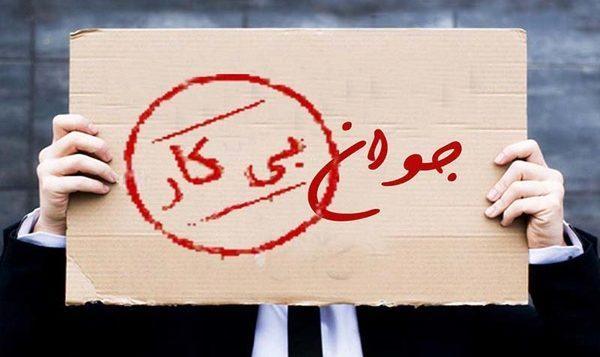 جوان بی کار